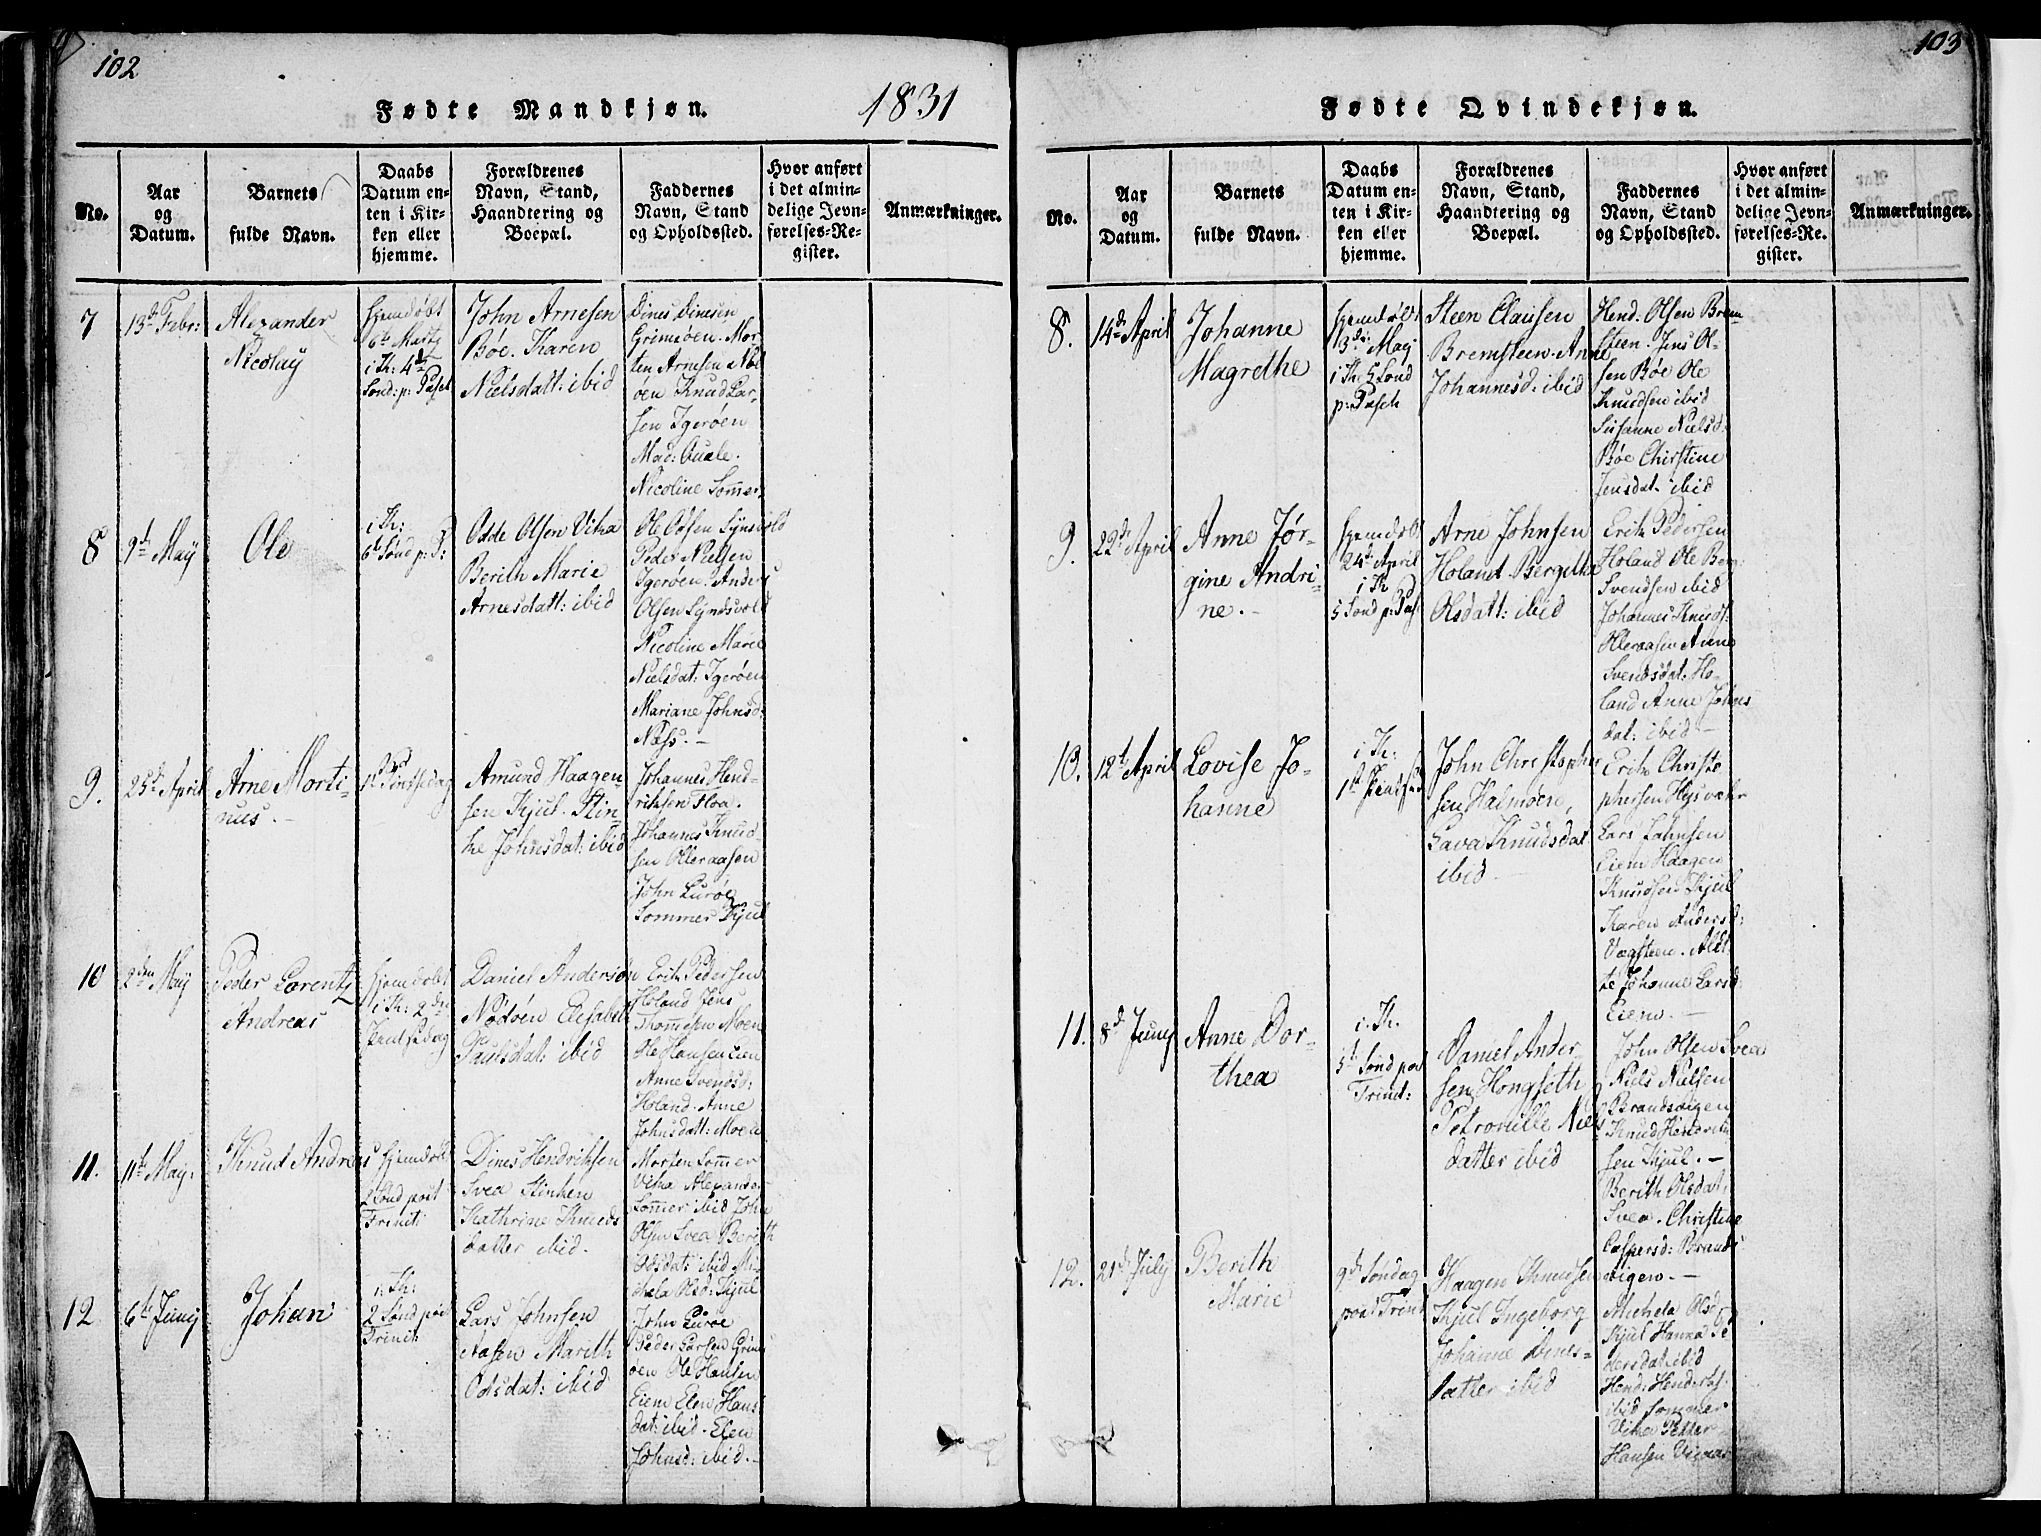 102
1831
Fødte Mandkjøn.
No.
Aar
og
Datum.
Barnets
fulde Navn.
Daabs
Datum en-
ten i Kir-
ken eller
hjemme.
Forældrenes
Navn, Stand,
Haandtering og
Boepæl.
Faddernes
Navn, Stand
og Opholdssted.
Hvor anført
i det almin-
delige Jevn-
førelses-Re-
gister.
Anmærkninger.
7
13de Febr:
Alexander
Nicolay
hjemdøbt
6te Martz
i Th: 4de
Sond: p: Pasch
John Arnesen
Bøe. Karen
Nielsdatt: ibid
Dines Dinesen
Grimsøen. Mor-
ten Arnesen Nol
øen Knud Lar-
sen Igerøen
Mad: Quale.
Nicoline Sommer.
8
9de Maij
Ole
i Th:
6te Sond p. P:
Odde Olsen Vitna
Berith Marie
Arnesdatt: ibid
Ole Odsen Synsvold
Peder Nielsen
Igerøen. Anders
Olsen Syndsvold
Nicoline Marie
Nielsdat: Igerøen
Mariane Johnsd:
Næss. –
9.
25de April
Arne Morti-
nus. –
1ste Pintsedag
Amund Haagen-
sen Kjul. Stin-
he Johnsdat: ibid
Johannes Hend-
riksen Floa.
Johannes Knud-
sen Olleraasen
John Lurøe
Sommer Kjul
10
2den Maij
Peder Lorentz
Andreas
hjemdøbt
i Th: 2den
Pintsedag
Daniel Andersen
Nødøen Elisabeth
Paulsdat: ibid
Erik Pedersen
Holand Jens
Thommesen Moen
Ole Hansen Eien
Anne Svendsd:
Holand. Anne
Johnsdatt: Moen
11.
11te Maij:
Knud Andreas
hjemdøbt
2 Sond post
Trinit:
Dines Hendriksen
Svea Stinken
Kathrine Knuds
datter ibid.
Morten Sommer
Vitna Alexander
Sommer ibid John
Olsen Svea Berith
Odsdat: ibid Mi-
chela Olsd: Kjul
12
6te Junij
Johan
i Th:
2 Sønd post
Trinit:
Lars Johnsen
Aasen Marith
Odsdat: ibid
John Lurøe
Peder Larsen Grims
øen Ole Hansen
Eiem Elen Hans
dat: ibid. Elen
Johnsd: ibid. –
103
Fødte Qvindekjøn.
No.
Aar
og
Datum.
Barnets
fulde Navn.
Daabs
Datum en-
ten i Kir-
ken eller
hjemme.
Forældrenes
Navn, Stand,
Haandtering og
Boepæl.
Faddernes
Navn, Stand
og Opholdssted.
Hvor anført
i det almin-
delige Jevn-
førelses-Re-
gister.
Anmærkninger.
8.
14de April
Johanne
Magrethe
hjemdøbt
3die Maj
i Th 5 Sond
p: Pasch
Steen Clausen
Bremsteen. Anne
Johannesd: ibid
Hend. Olsen Brem-
steen. Jens Ol-
sen Bøe Ole
Knudsen ibid
Susanne Nielsd:
Bøe Chirstine
Jensdat. ibid
9.
22de April
Anne Jør-
gine Andri-
ne. –
hjemdøbt
24de April
i Th
5 Sond p: Pas:
Arne Johnsen
Holand. Bergitha
Olsdatt: ibid
Erik Pedersen
Holand Ole Bern:
Svendsen ibid
Johannes Knudt:
Olleraasen Anne
Svendsdat: Ho-
land Anne Johns
dat: ibid –
10.
12te April
Lovise Jo-
hanne
i Th:
1ste Pintsed
John Christopher
sen Halmøen,
Gava Knudsdat
ibid –
Erik Christo
phersen Høysvæhr
Lars Johnsen
Eiem Haagen
Knudsen Kjul
Karen Andersd:
Vægsteen. Alet-
te Johanne Larsd:
Eiem. –
11.
8de Junij
Anne Dor-
thea
i Th.
5te Sønd post
Trinit:
Daniel Ander-
sen Hongseth
Petronille Niels
datter ibid
John Olsen Svea
Niels Nielsen
Brandsaigen
Knud Hendrik
sen Kjul. –
Berith Olsdat:
Svea. Christine
Caspersd: Brands
aigen. –
12.
21de July
Berith
Marie
9de Søndag
post Trinit
Haagen Knudsen
Kjul Ingeborg
Johanne Dines-
datter ibid
Michela Olsd:
Kjul Hanna Pe
dersdat. ibid
Hend: Henderiks:
ibid Sommer
Vitna Petter
Hansen Vigaas